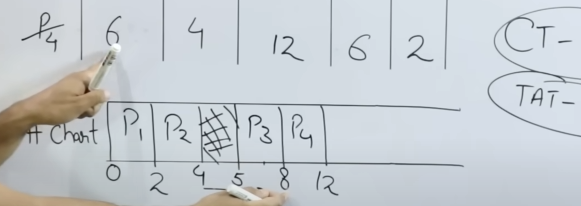 P4 6 4 12 6 2
CT-
TAT-
Chart P1 P2 P3 P4
0 2 4 5 8 12